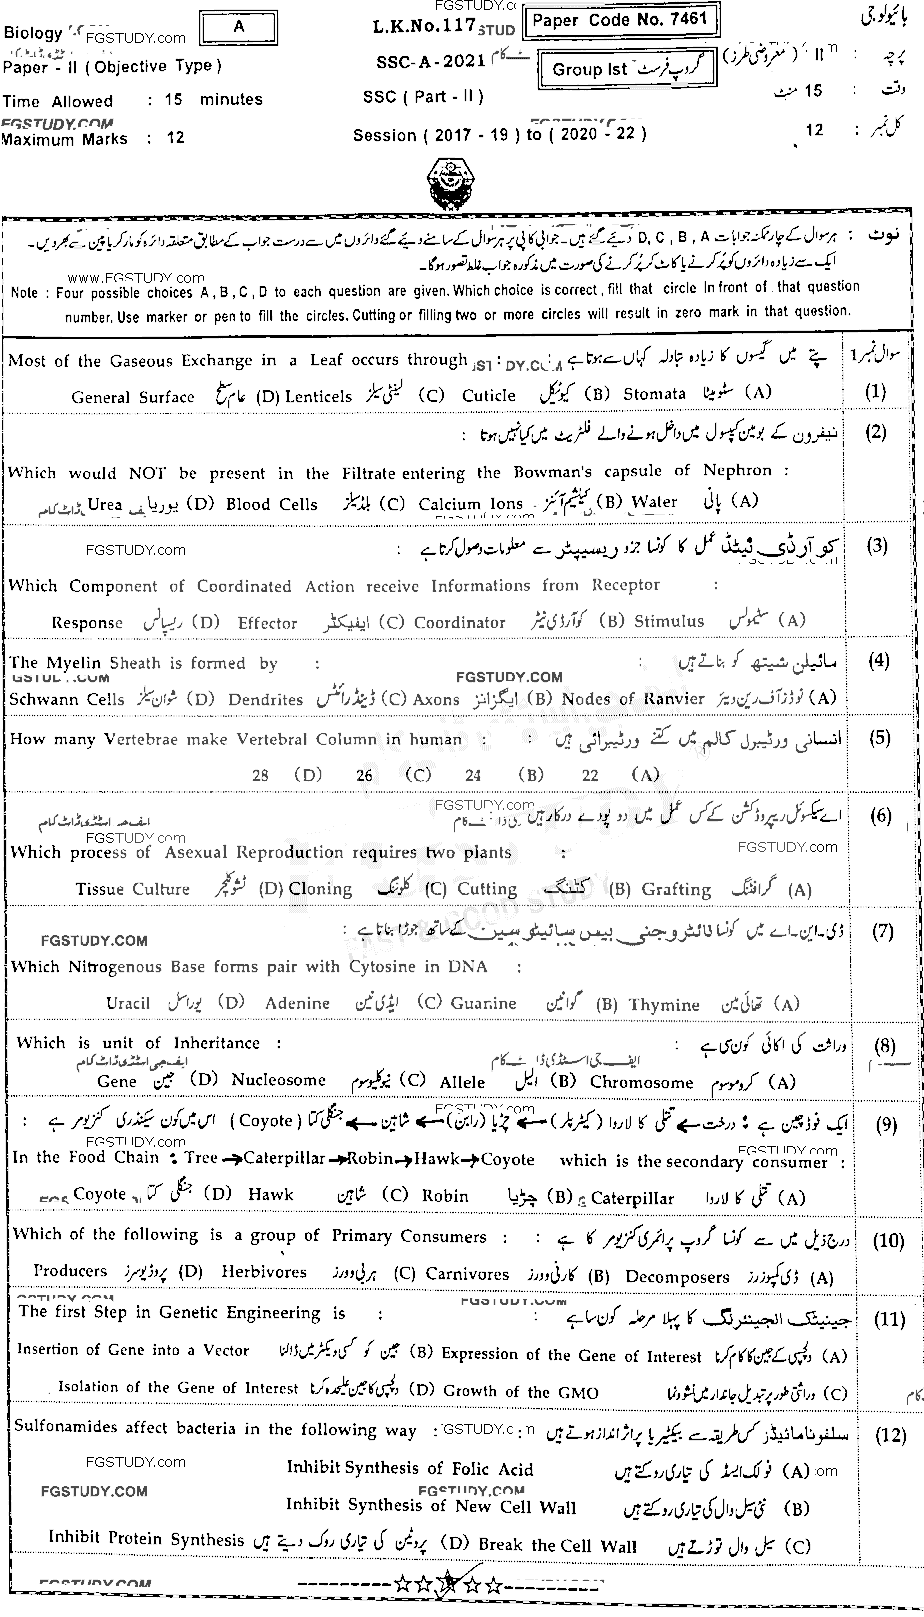 Biology FGSTUDY.com A L.K.No.117 Paper Code No. 7461 بائیولوجی
Paper - II (Objective Type) SSC-A-2021 Group Ist گروپ فرسٹ (معروضی طرز) II پرچہ :
Time Allowed : 15 minutes SSC (Part - II) 15 منٹ وقت :
FGSTUDY.COM
Maximum Marks : 12 Session (2017 - 19) to (2020 - 22) 12 کل نمبر :
نوٹ : ہر سوال کے چار ممکنہ جوابات D, C, B, A دیئے گئے ہیں۔ جوابی کاپی پر ہر سوال کے سامنے دیئے گئے دائروں میں سے درست جواب کے مطابق متعلقہ دائرہ کو مارکر یا پین سے بھر دیں۔
ایک سے زیادہ دائروں کو پُر کرنے یا کاٹ کر پُر کرنے کی صورت میں مذکورہ جواب غلط تصور ہوگا۔
www.FGSTUDY.com
Note : Four possible choices A, B, C, D to each question are given. Which choice is correct, fill that circle in front of that question
number. Use marker or pen to fill the circles. Cutting or filling two or more circles will result in zero mark in that question.
سوال نمبر 1 پتے میں گیسوں کا زیادہ تبادلہ کہاں سے ہوتا ہے Most of the Gaseous Exchange in a Leaf occurs through
(1) (A) سٹومیٹا Stomata (B) کیوٹیکل Cuticle (C) لینٹی سیلز Lenticels (D) عام سطح General Surface
(2) نیفرون کے بومین کیپسول میں داخل ہونے والے فلٹریٹ میں کیا نہیں ہوتا :
Which would NOT be present in the Filtrate entering the Bowman's capsule of Nephron :
(A) پانی Water (B) کیلشیم آئنز Calcium Ions (C) بلڈ سیلز Blood Cells (D) یوریا Urea
FGSTUDY.com
(3) کوآرڈی نیٹڈ عمل کا کونسا جزو ریسیپٹر سے معلومات وصول کرتا ہے :
FGSTUDY.com
Which Component of Coordinated Action receive Informations from Receptor :
(A) سٹیمولس Stimulus (B) کوآرڈی نیٹر Coordinator (C) ایفیکٹر Effector (D) ریسپانس Response
(4) مائیلن شیتھ کو بناتے ہیں : The Myelin Sheath is formed by :
FGSTUDY.COM
(A) نوڈز آف رین ویئر Nodes of Ranvier (B) ایگزانز Axons (C) ڈینڈرائٹس Dendrites (D) شوان سیلز Schwann Cells
(5) انسانی ورٹیبرل کالم میں کتنے ورٹیبرائی ہیں : How many Vertebrae make Vertebral Column in human :
(A) 22 (B) 24 (C) 26 (D) 28
(6) اے سیکسوئل ریپروڈکشن کے کس عمل میں دو پودے درکار ہیں FGSTUDY.com
FGSTUDY.com FGSTUDY.com
Which process of Asexual Reproduction requires two plants :
(A) گرافٹنگ Grafting (B) کٹنگ Cutting (C) کلوننگ Cloning (D) ٹشو کلچر Tissue Culture
(7) ڈی۔این۔اے میں کونسا نائٹروجنی بیس سائیٹوسین کے ساتھ جوڑا بناتا ہے :
FGSTUDY.COM
Which Nitrogenous Base forms pair with Cytosine in DNA :
(A) تھائی مین Thymine (B) گوانین Guanine (C) ایڈی نین Adenine (D) یوراسل Uracil
(8) وراثت کی اکائی کون سی ہے : Which is unit of Inheritance :
ایف جی اسٹڈی ڈاٹ کام
(A) کروموسوم Chromosome (B) الیل Allele (C) نیوکلیوسوم Nucleosome (D) جین Gene
(9) ایک فوڈ چین ہے : درخت ← تتلی کا لاروا (کیٹرپلر) ← چڑیا (رابن) ← شاہین ← جنگلی کتا (Coyote) اس میں کون سیکنڈری کنزیومر ہے :
FGSTUDY.com FGSTUDY.com FGSTUDY.com
In the Food Chain : Tree→Caterpillar→Robin→Hawk→Coyote which is the secondary consumer :
(A) تتلی کا لاروا Caterpillar (B) چڑیا Robin (C) شاہین Hawk (D) جنگلی کتا Coyote
(10) درج ذیل میں سے کونسا گروپ پرائمری کنزیومر کا ہے : Which of the following is a group of Primary Consumers :
(A) ڈی کمپوزرز Decomposers (B) کارنی وورز Carnivores (C) ہربی وورز Herbivores (D) پروڈیوسرز Producers
FGSTUDY.COM
(11) جینیٹک انجینئرنگ کا پہلا مرحلہ کون سا ہے The first Step in Genetic Engineering is :
(A) دلچسپی کے جین کا کام کرنا Expression of the Gene of Interest (B) جین کو کسی ویکٹر میں ڈالنا Insertion of Gene into a Vector
(C) وراثتی طور پر تبدیل جاندار میں نشوونما Growth of the GMO (D) دلچسپی کا جین علیحدہ کرنا Isolation of the Gene of Interest
(12) سلفونامائیڈز کس طریقہ سے بیکٹیریا پر اثر انداز ہوتے ہیں Sulfonamides affect bacteria in the following way :
FGSTUDY.com
(A) فولک ایسڈ کی تیاری روکتے ہیں Inhibit Synthesis of Folic Acid
FGSTUDY.COM FGSTUDY.COM
(B) نئی سیل وال کی تیاری روکتے ہیں Inhibit Synthesis of New Cell Wall
(C) سیل وال توڑتے ہیں Break the Cell Wall (D) پروٹین کی تیاری روک دیتے ہیں Inhibit Protein Synthesis
FGSTUDY.COM